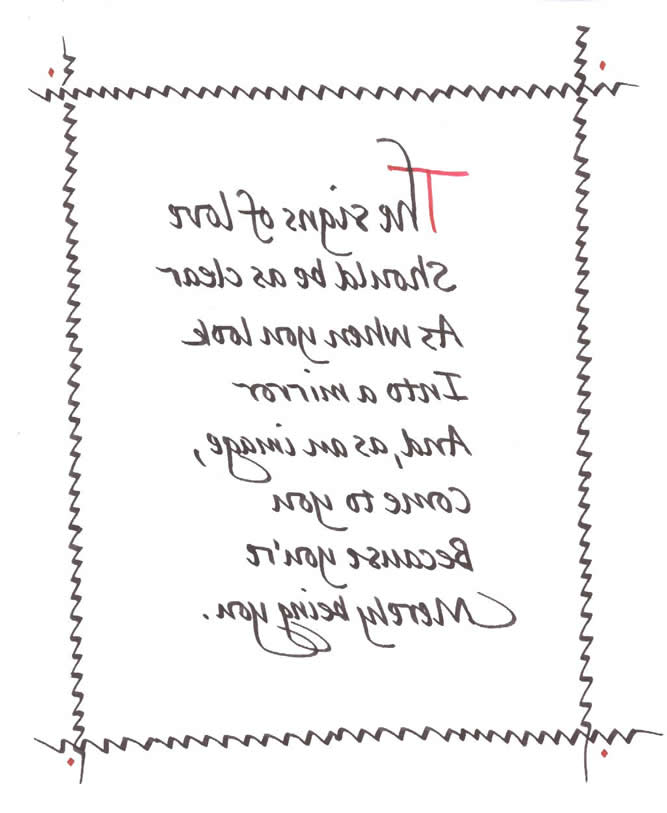 The signs of love
Should be as clear
As when you look
Into a mirror
And, as an image,
Come to you
Because you're
Merely being you.